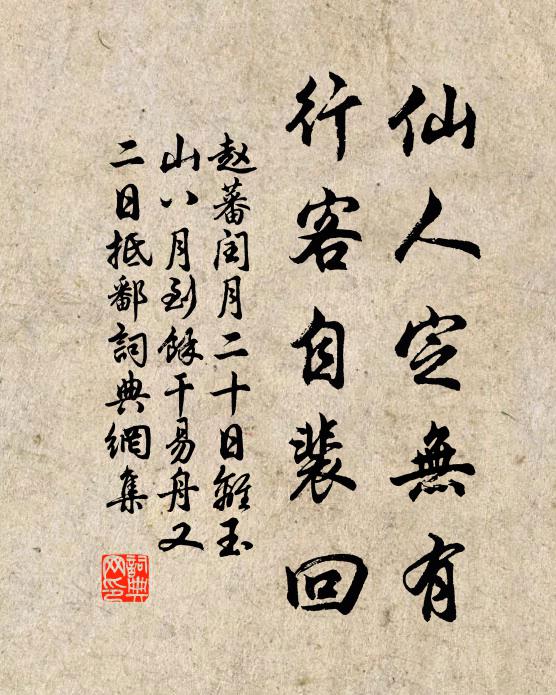 仙人定無有
行客自裴回
赵蕃闰月二十日離玉
山八月到餘干易舟又
二日抵鄱詞典網集
詞典
网印